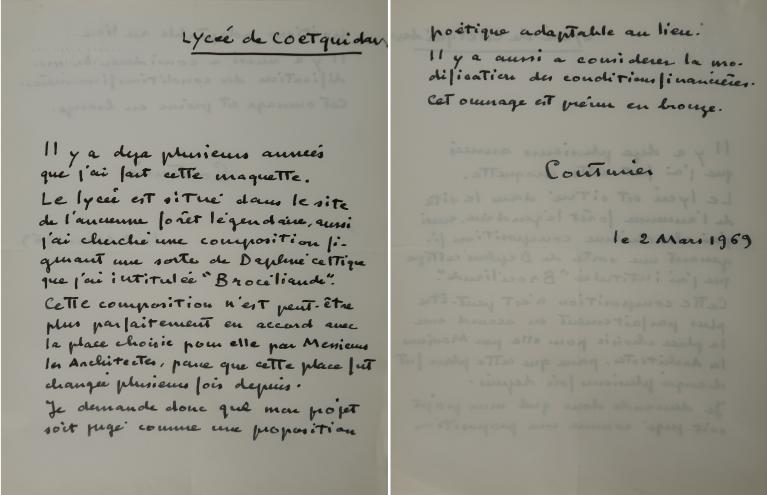 Lycée de Coetquidan
Il y a deja plusieurs années
que j'ai fait cette maquette.
Le lycée est situé dans le site
de l'ancienne forêt légendaire, aussi
j'ai cherché une composition fi-
gurant une sorte de Daphné celtique
que j'ai intitulée "Brocéliande".
Cette composition n'est peut-être
plus parfaitement en accord avec
la place choisie pour elle par Messieurs
les Architectes, parce que cette place fut
changée plusieurs fois depuis.
Je demande donc que mon projet
soit jugé comme une proposition
poétique adaptable au lieu.
Il y a aussi a considerer la mo-
dification des conditions financières.
Cet ouvrage est prévu en bronze.
Couturier
le 2 Mars 1969